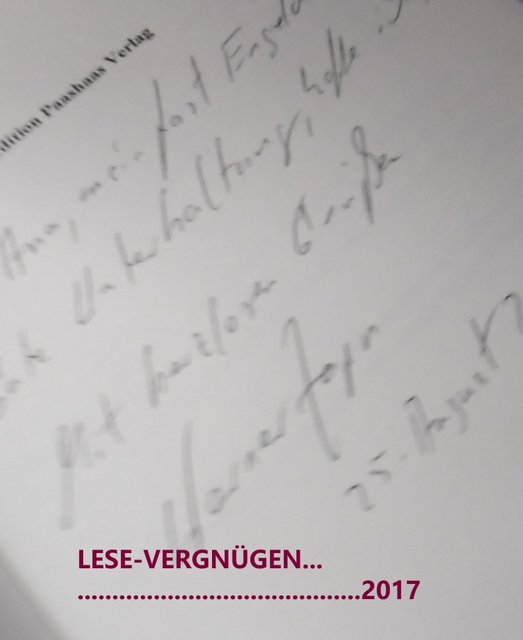 dition Paashaas Verlag
mein fast
Unterhaltung, hoffe
Mit herzlosen Grüßen
Werner
25. August
LESE-VERGNÜGEN...
.........................................2017